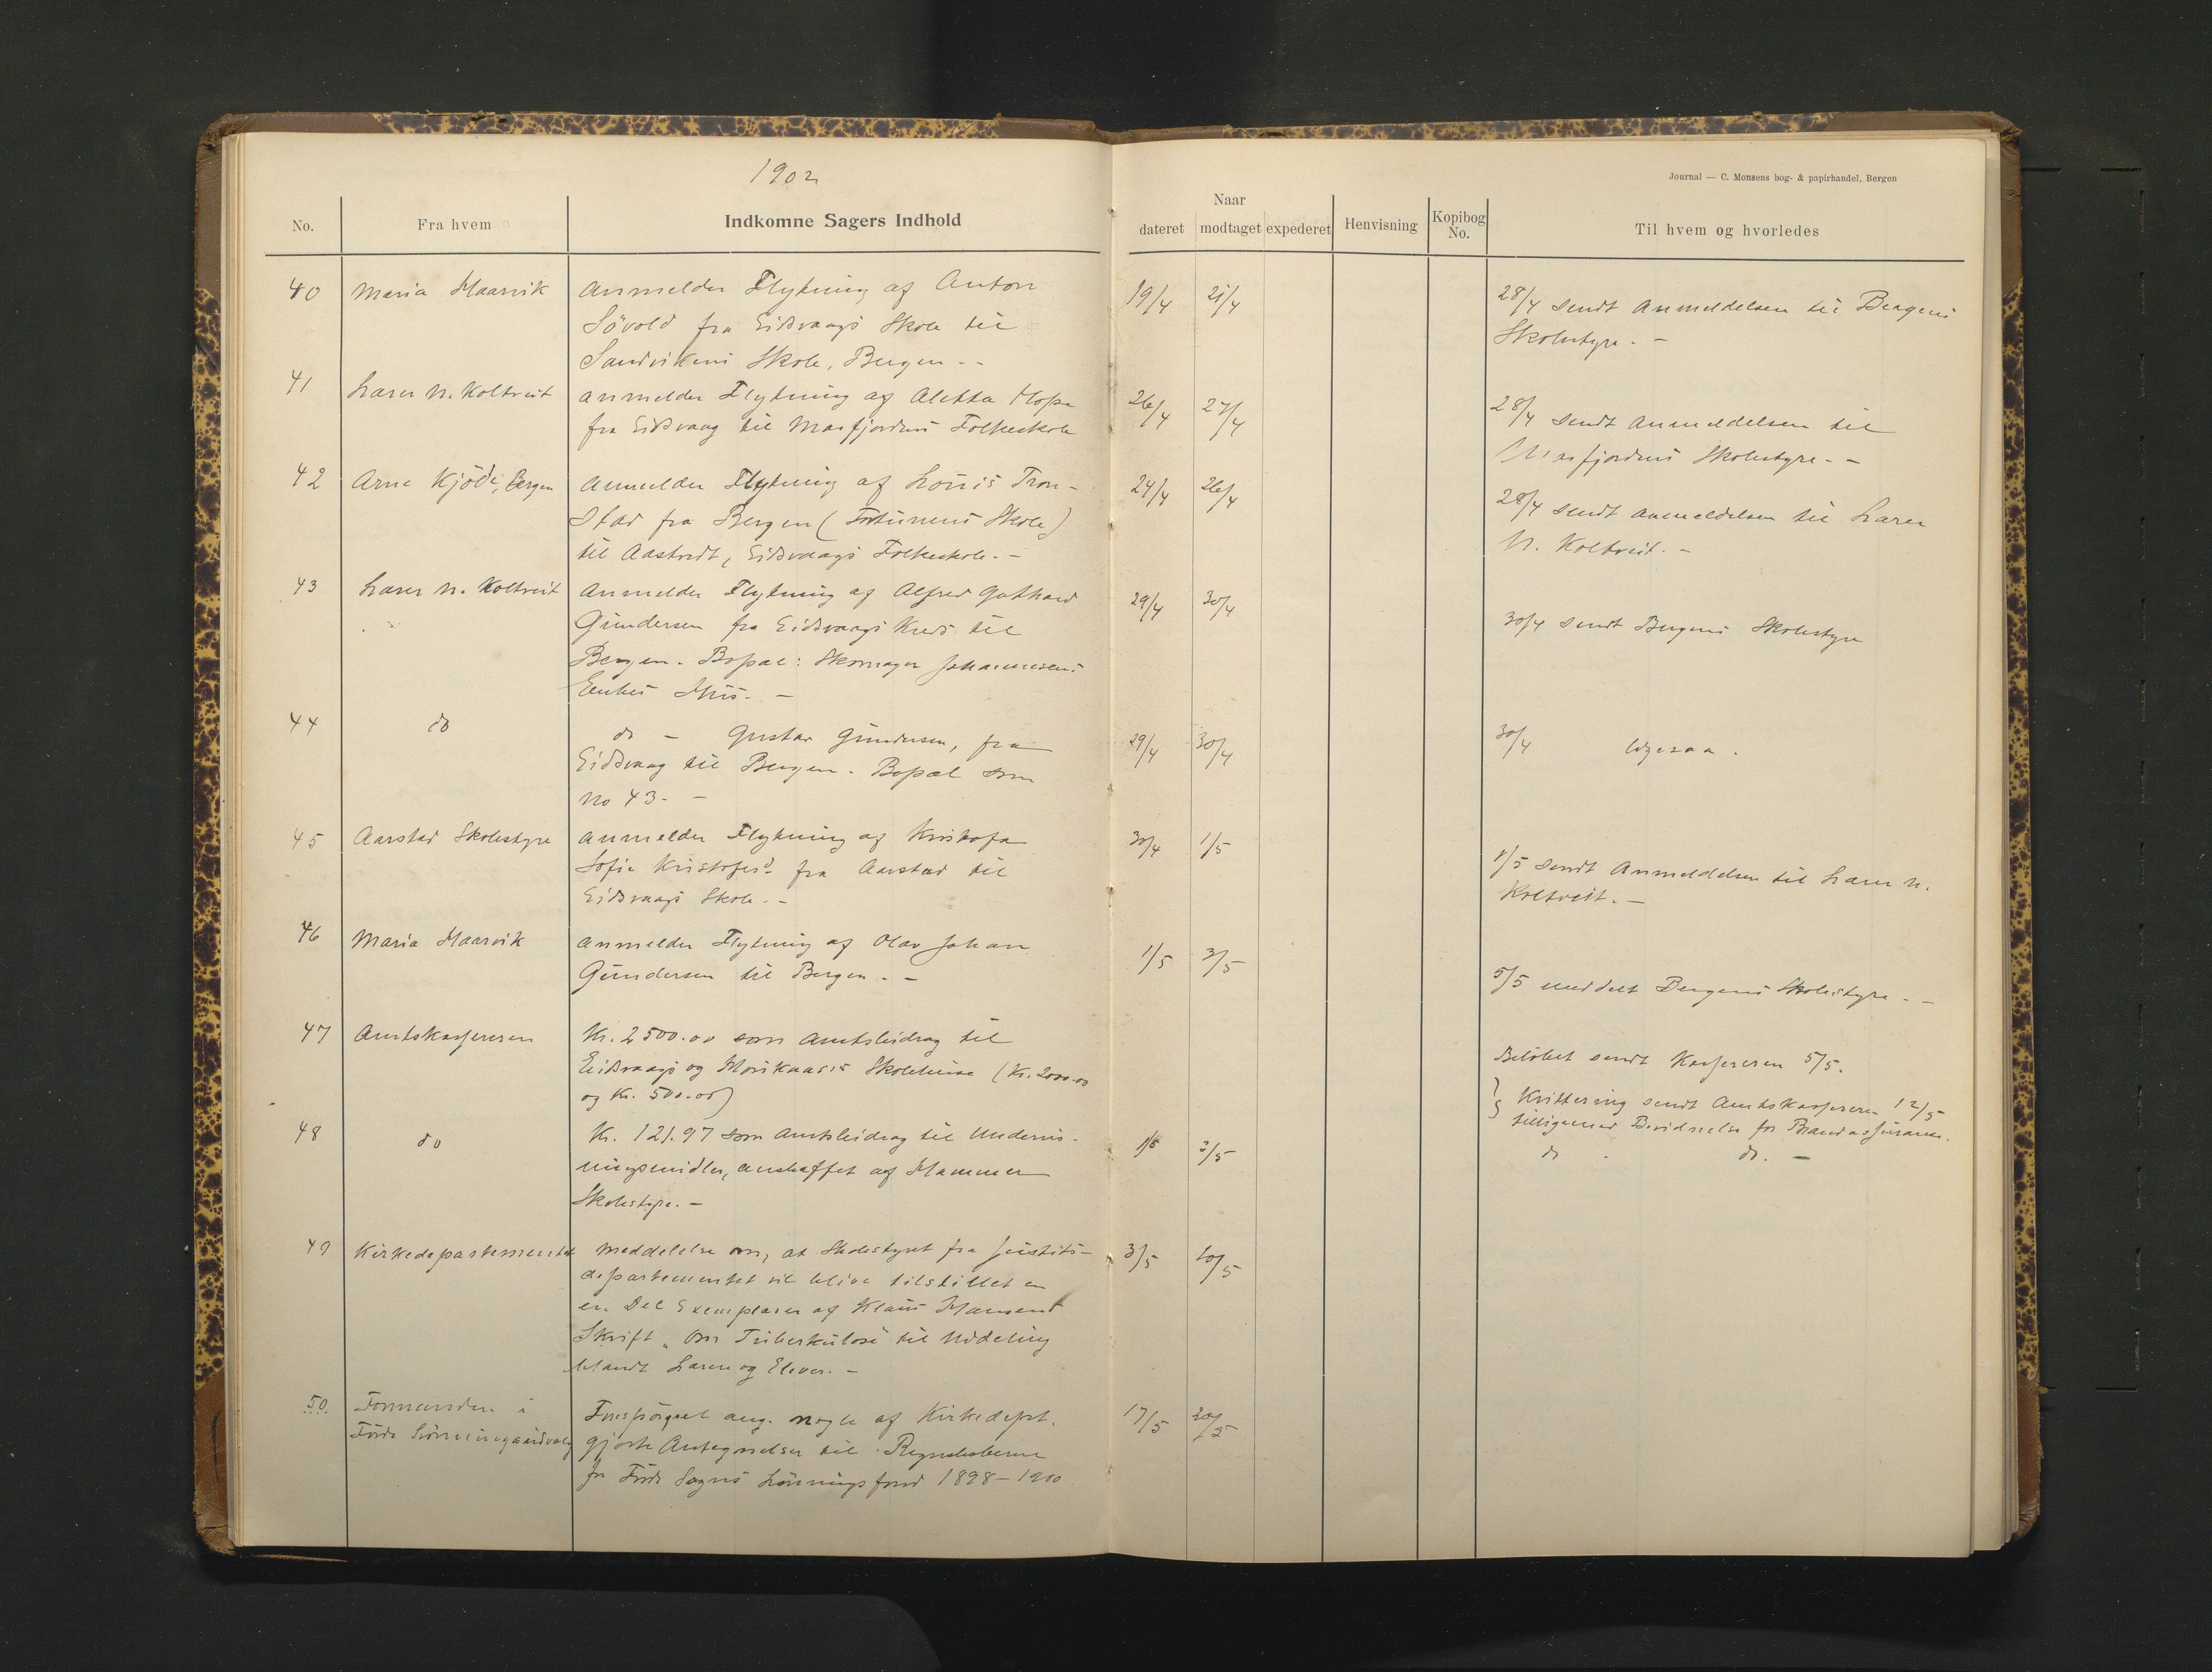 1902
Journal — C. Monsens bog- & papirhandel, Bergen
No.
Fra hvem
Indkomne Sagers Indhold
Naar
dateret
modtaget
expederet
Henvisning
Kopibog No.
Til hvem og hvorledes
40
Maria Haarvik
Anmelder Flytning af Anton
Sövold fra Eidsvaags Skole til
Sandvikens Skole, Bergen --
19/4
21/4
28/4 sendt Anmeldelsen til Bergens
Skolestyre. -
41
Lærer N. Koltveit
anmelder Flytning af Aletta Hope
fra Eidsvaag til Masfjordens Folkeskole
26/4
27/4
28/4 sendt Anmeldelsen til
Masfjordens Skolestyre. -
42
Arne Kjöde, Bergen
Anmelder Flytning af Lovis Tron-
stad fra Bergen (Fortunens Skole)
til Aastvedt, Eidsvaags Folkeskole. -
24/4
26/4
28/4 sendt Anmeldelsen til Lærer
N. Koltveit. -
43
Lærer N. Koltveit
Anmelder Flytning af Alfred Gothard
Gundersen fra Eidsvaags Kreds til
Bergen. Bopæl: Skomager Johannesens
Enkes Hus. -
29/4
30/4
30/4 sendt Bergens Skolestyre
44
do
do - Gustav Gundersen, fra
Eidsvaag til Bergen. Bopæl som
No 43. -
29/4
30/4
30/4 ligesaa.
45
Aarstad Skolestyre
anmelder Flytning af Kristofa
Sofie Kristofersd. fra Aarstad til
Eidsvaags Skole. -
30/4
1/5
1/5 sendt Anmeldelsen til Lærer N.
Koltveit. -
46
Maria Haarvik
anmelder Flytning af Olav Johan
Gundersen til Bergen. -
1/5
3/5
5/5 meddelt Bergens Skolestyre. -
47
Amtskassereren
Kr. 2500.00 som Amtsbidrag til
Eidsvaags og Skolehuse (Kr. 2000.00
og Kr. 500.00)
Belöbet sendt Kassereren 5/5.
Kvittering sendt Amtskassereren 12/5
tilligemed Bevidnelse for Brandassurance.
48
do
Kr. 121.97 som Amtsbidrag til Undervis-
ningsmidler, anskaffet af Hammer
Skolestyre. -
1/5
3/5
do. do. -
49
Kirkedepartementet
Meddelelse om, at Skolestyret fra Justits-
departementet vil blive tilstillet en
en Del Exemplarer af Klaus Hansens
Skrift "Om Tuberkulose til Uddeling
blandt Lærere og Elever. -
3/5
10/5
50.
Formanden i
Förde
Forespörgsel ang. nogle af Kirkedept.
gjorte Antegnelser til Regnskaberne
for Förde Sogns Lönningsfond 1898-1900
17/5
20/5